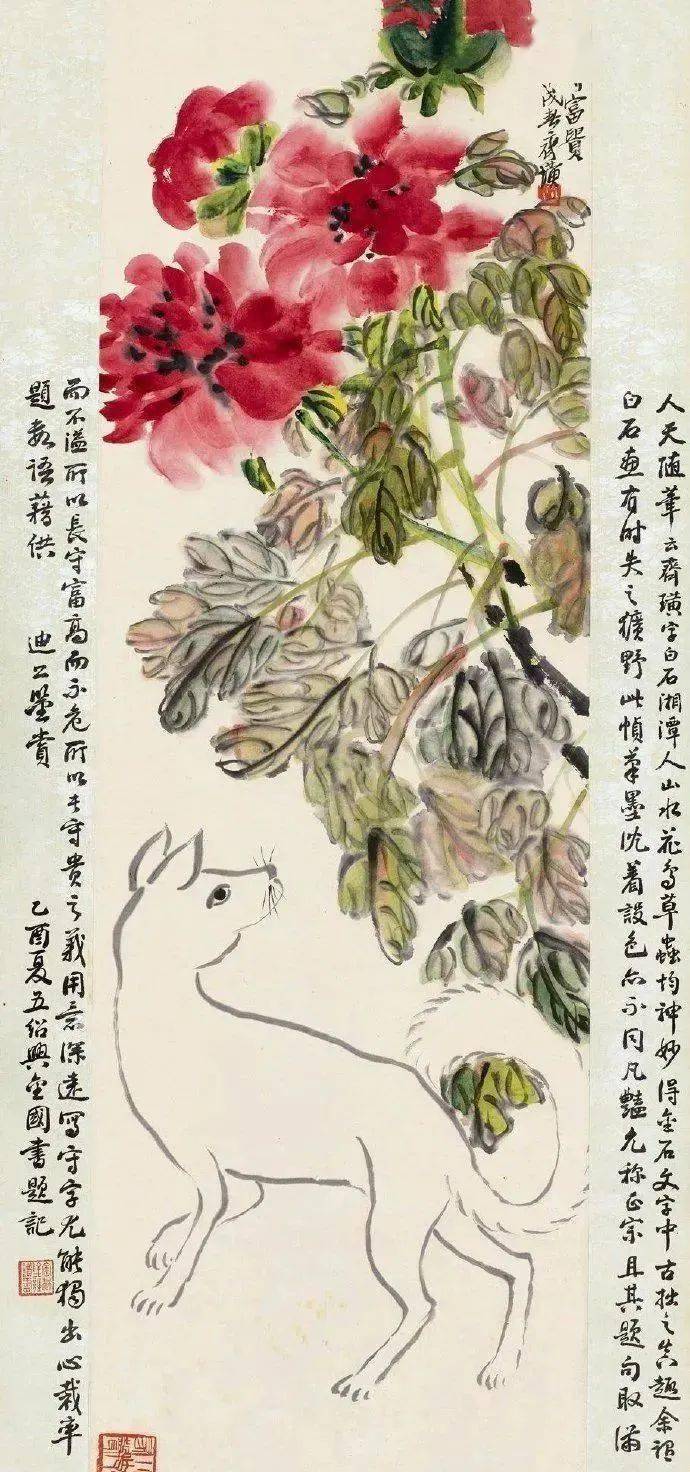 富貴
春齊璜
人天隨筆云齊璜字白石湘潭人山水花鳥草蟲均神妙得金石文字中古拙之真趣余
白石畫有時失之獷野此幀筆墨沈着設色亦不同凡豔尤稱正宗且其題句取滿
而不溢所以長守富高而不危所以長守貴之義用意深遠寫守字尤能獨出心裁率
題數語藉供 迪公鑒賞 乙酉夏五紹興金國書題記